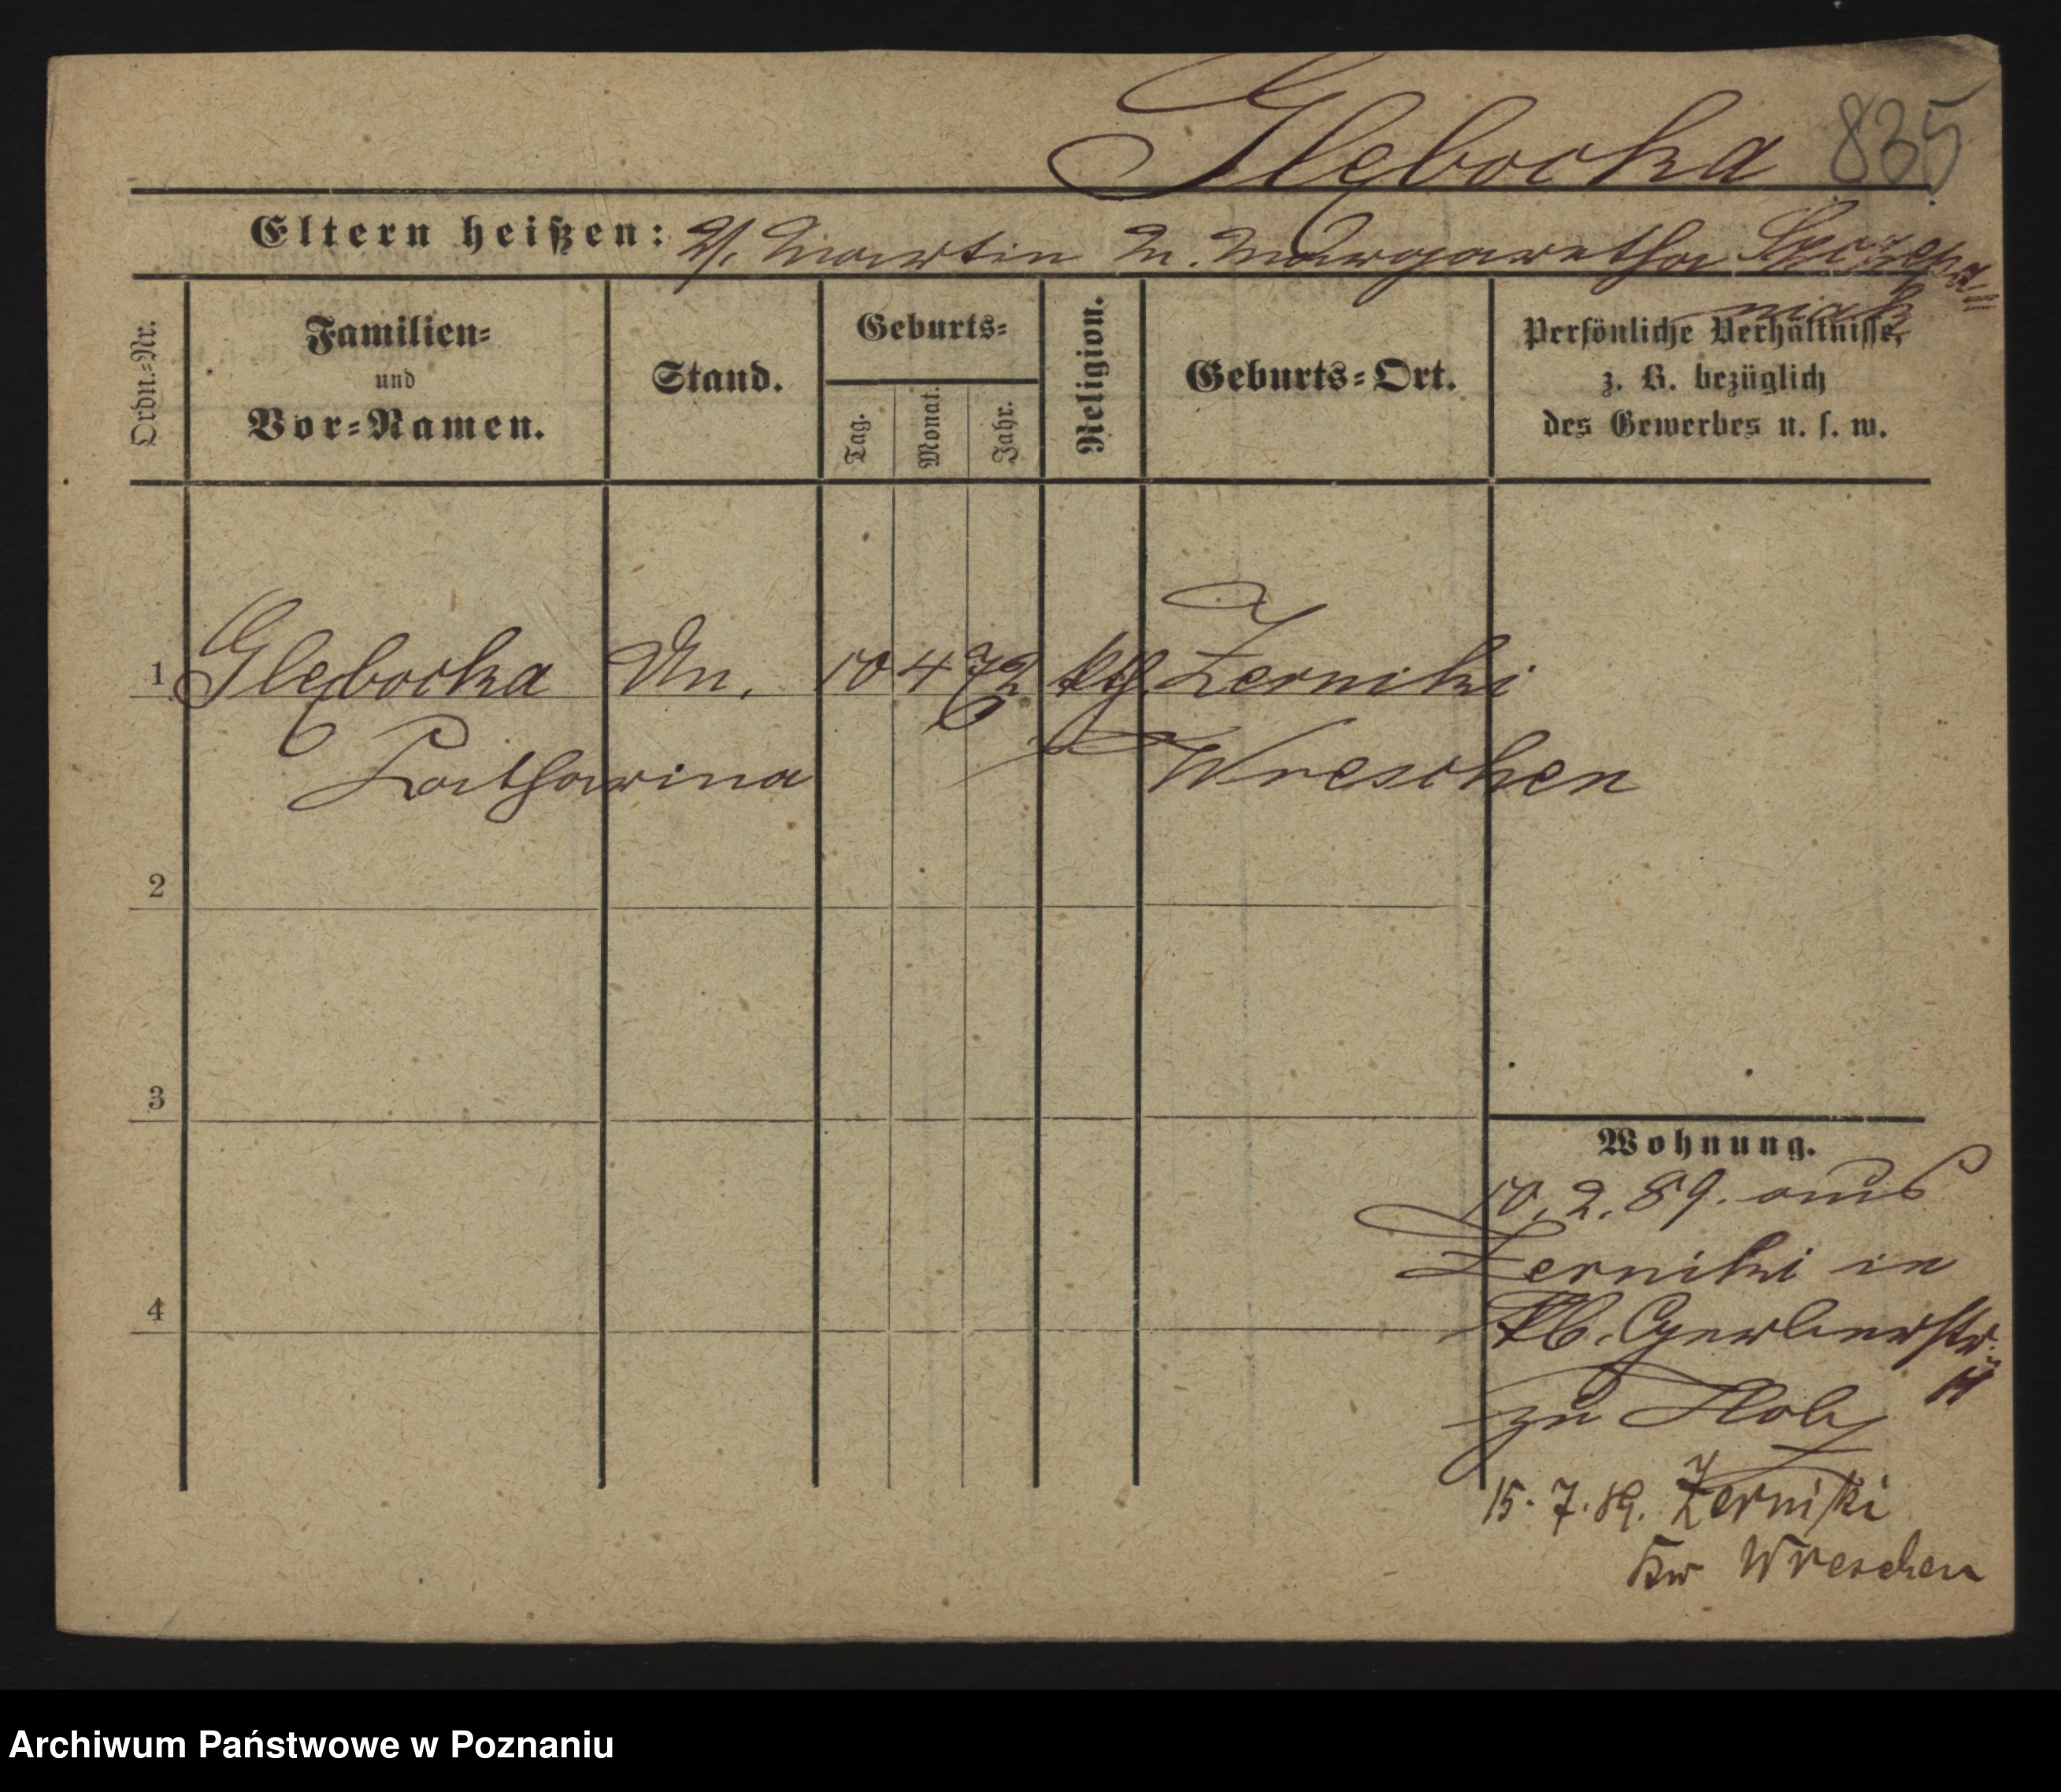 Glębocka 835
Eltern heißen: V. Martin M. Margaretha Szczepa=
niak
Ordn.=Nr.
Familien=
und
Vor=Namen.
Stand.
Geburts=
Tag.
Monat.
Jahr.
Religion.
Geburts=Ort.
Persönliche Verhältnisse,
z. B. bezüglich
des Gewerbes u. s. w.
1 Glębocka Un. 10 4 72 ktg. Zerniki
Catharina Wreschen
2
3
4
Wohnung.
10.2.89. aus
Zerniki in
Kb. Gerberstr.
11
zu
15.7.89. Zerniki
Kr Wreschen
Archiwum Państwowe w Poznaniu